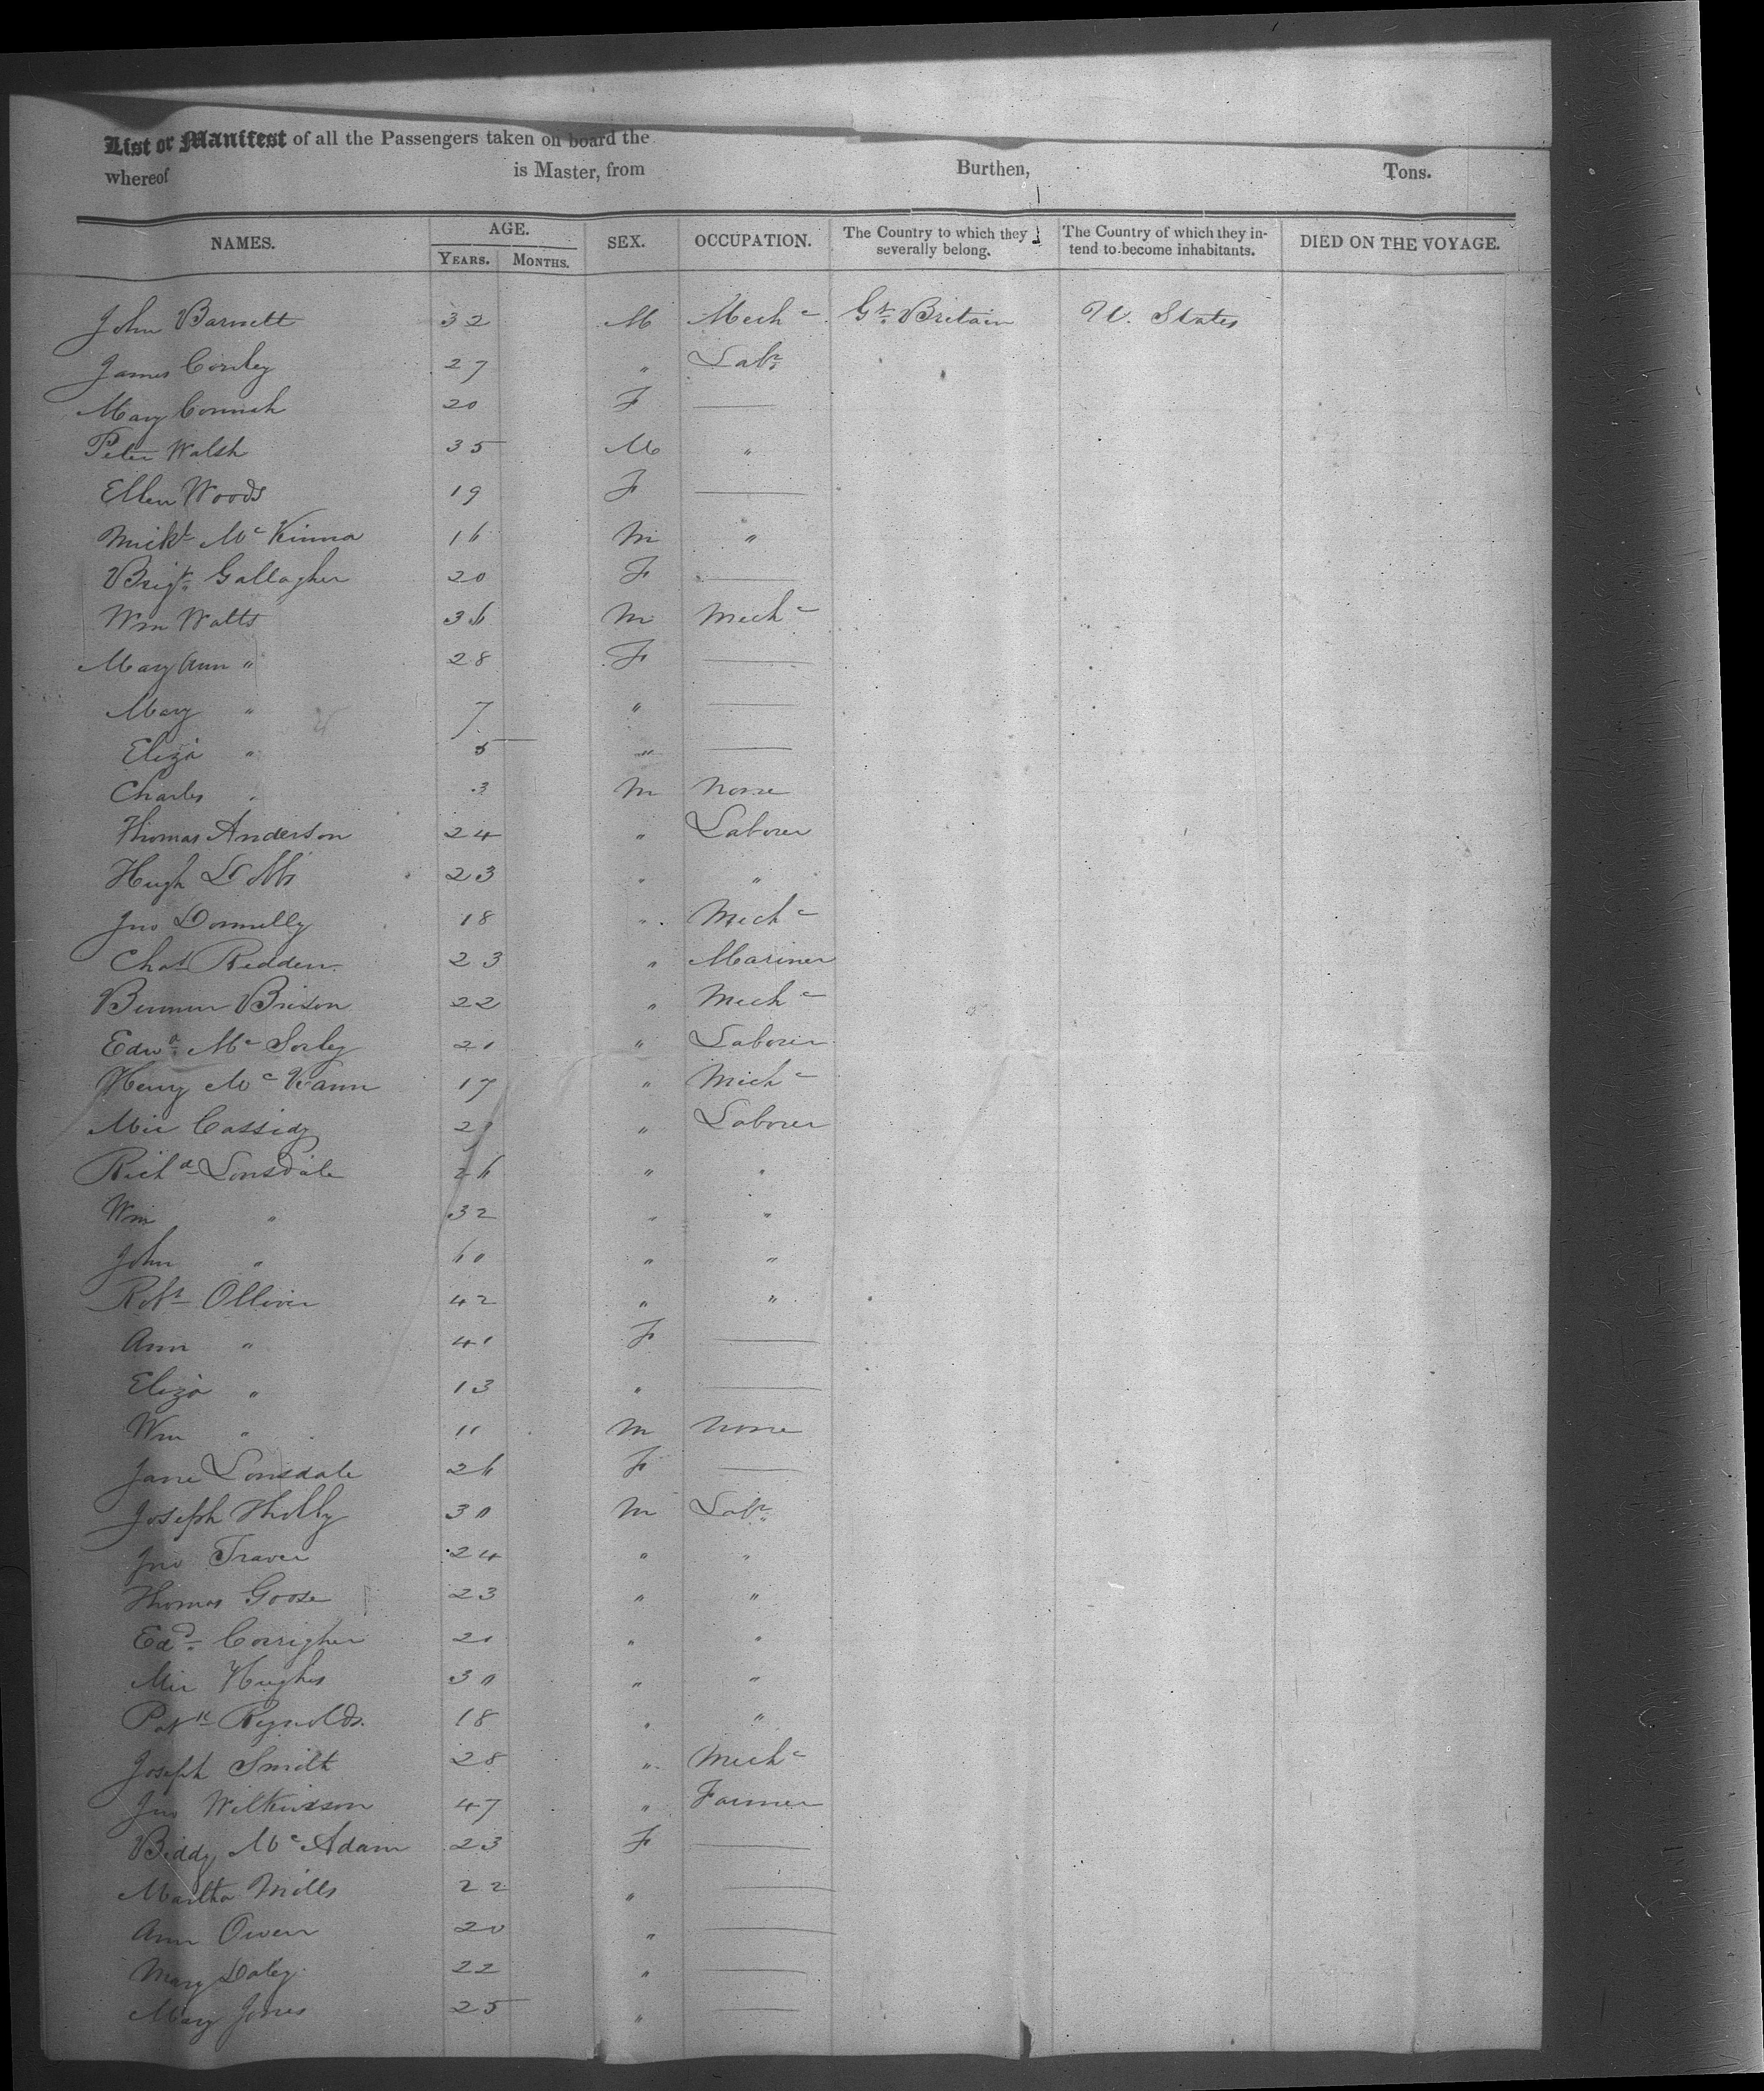 List or Manifest of all the Passengers taken on board the
whereof is Master, from Burthen, Tons.
NAMES. AGE. YEARS. MONTHS. SEX. OCCUPATION. The Country to which they severally belong. The Country of which they intend to become inhabitants. DIED ON THE VOYAGE.
John Barnett 32 M Mechc Gt. Britain U. States
James Conley 27 " Labr
Mary Cornish 20 F —
Peter Walsh 35 M "
Ellen Woods 19 F —
Mickl Mc Kinna 16 M "
Brigt. Gallagher 20 F —
Wm Watts 36 M Mechc
Mary Ann " 28 F —
Mary " 7 " —
Eliza " 5 " —
Charles " 3 M None
Thomas Anderson 24 " Laborer
Hugh Dobbs 23 " "
Jno Donnelly 18 " Mechc
Chas Redden 23 " Mariner
Brison 22 " Mechc
Edwd. Mc Sorley 21 " Laborer
Henry Mc Kann 17 " Mechc
Mic Cassidy " Laborer
Richd Lonsdale 26 " "
Wm " 32 " "
John " 60 " "
Robt Olliver 42 " "
Ann " 41 F —
Eliza " 13 " —
Wm " 11 M None
Jane Lonsdale 26 F —
Joseph 30 M Labr.
Jno Traver 24 " "
Thomas Goose 23 " "
Edd. Corrigher 21 " "
Mic Hughes 30 " "
Patk Reynolds. 18 " "
Joseph Smith 28 " Mechc
Jno Wilkinson 47 " Farmer
Biddy Mc Adam 23 F —
Martha Mills 22 " —
Ann Owen 20 " —
Mary Daley 22 " —
Mary Jones 25 " —